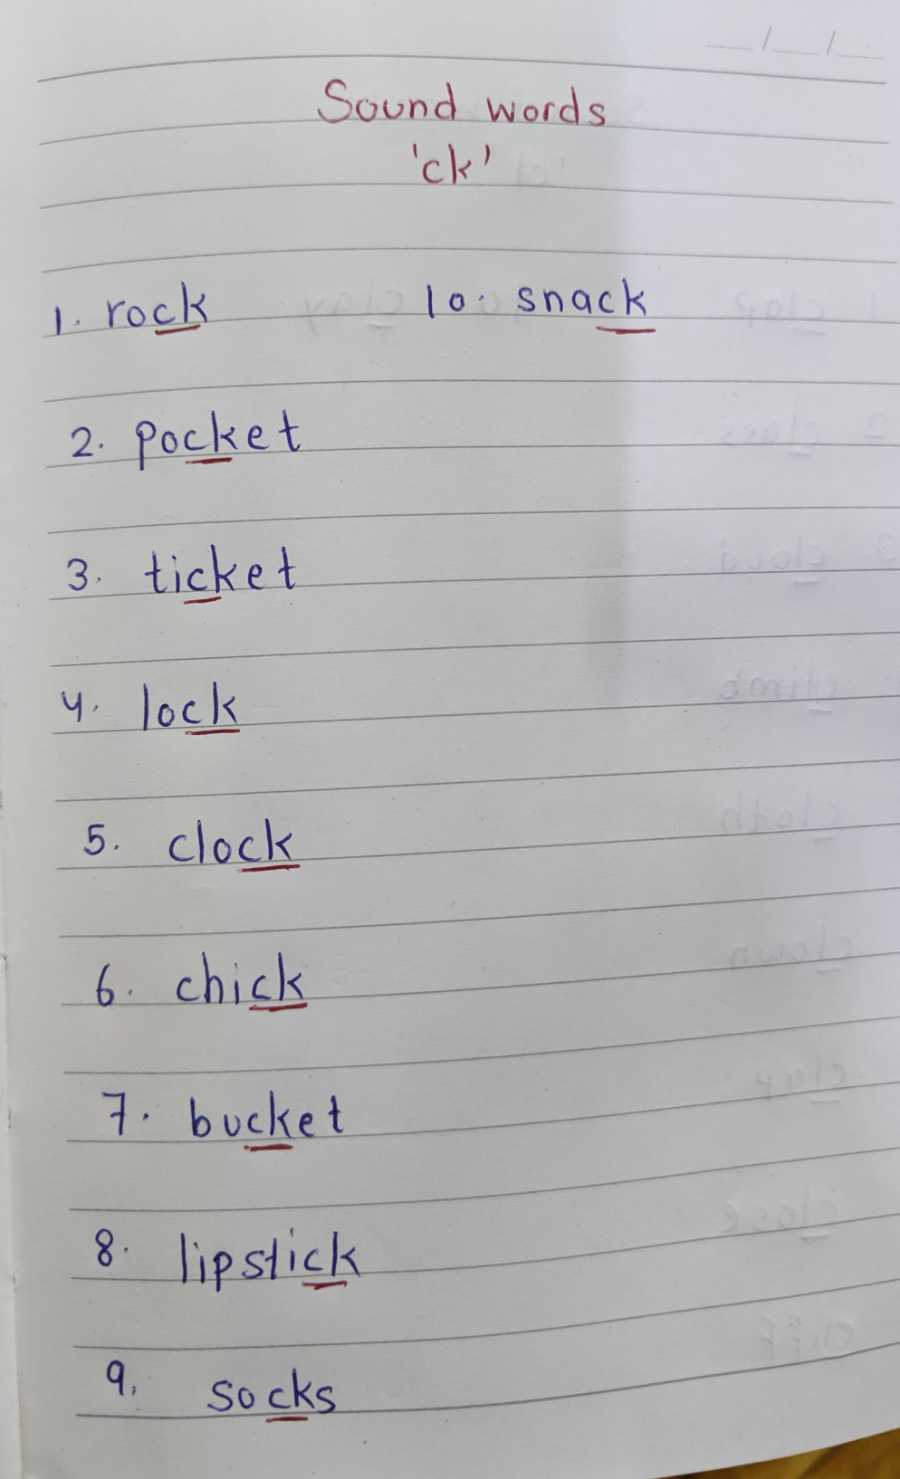 Sound words
'ck'
1. rock
10. snack
2. pocket
3. ticket
4. lock
5. clock
6. chick
7. bucket
8. lipstick
9. socks